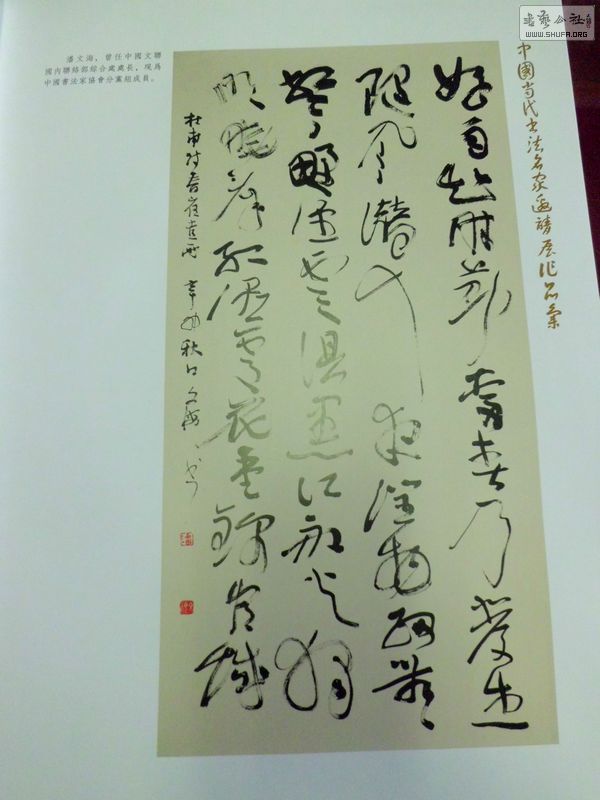 書藝公社
WWW.SHUFA.ORG
中國当代书法名家邀請展作品集
好雨知时節當春乃發生
隨風潛入夜潤物細無
聲野徑雲俱黑江船火獨
明曉看紅濕處花重錦官城
杜甫詩春夜喜雨 辛卯秋日文海書
潘文海，曾任中國文聯
國內聯絡部綜合處處長，現爲
中國書法家協會分黨組成員。